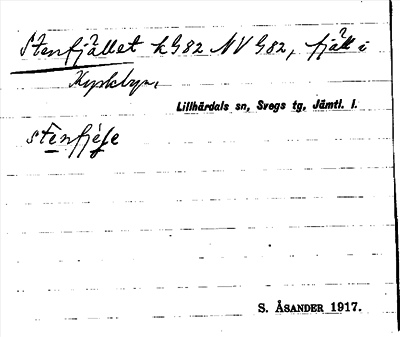 Stenfjället k G82 NV G82, fjäll i
Kyrkbyn,
Lillhärdals sn, Svegs tg, Jämtl. l.
stenfjęle
S. ÅSANDER 1917.